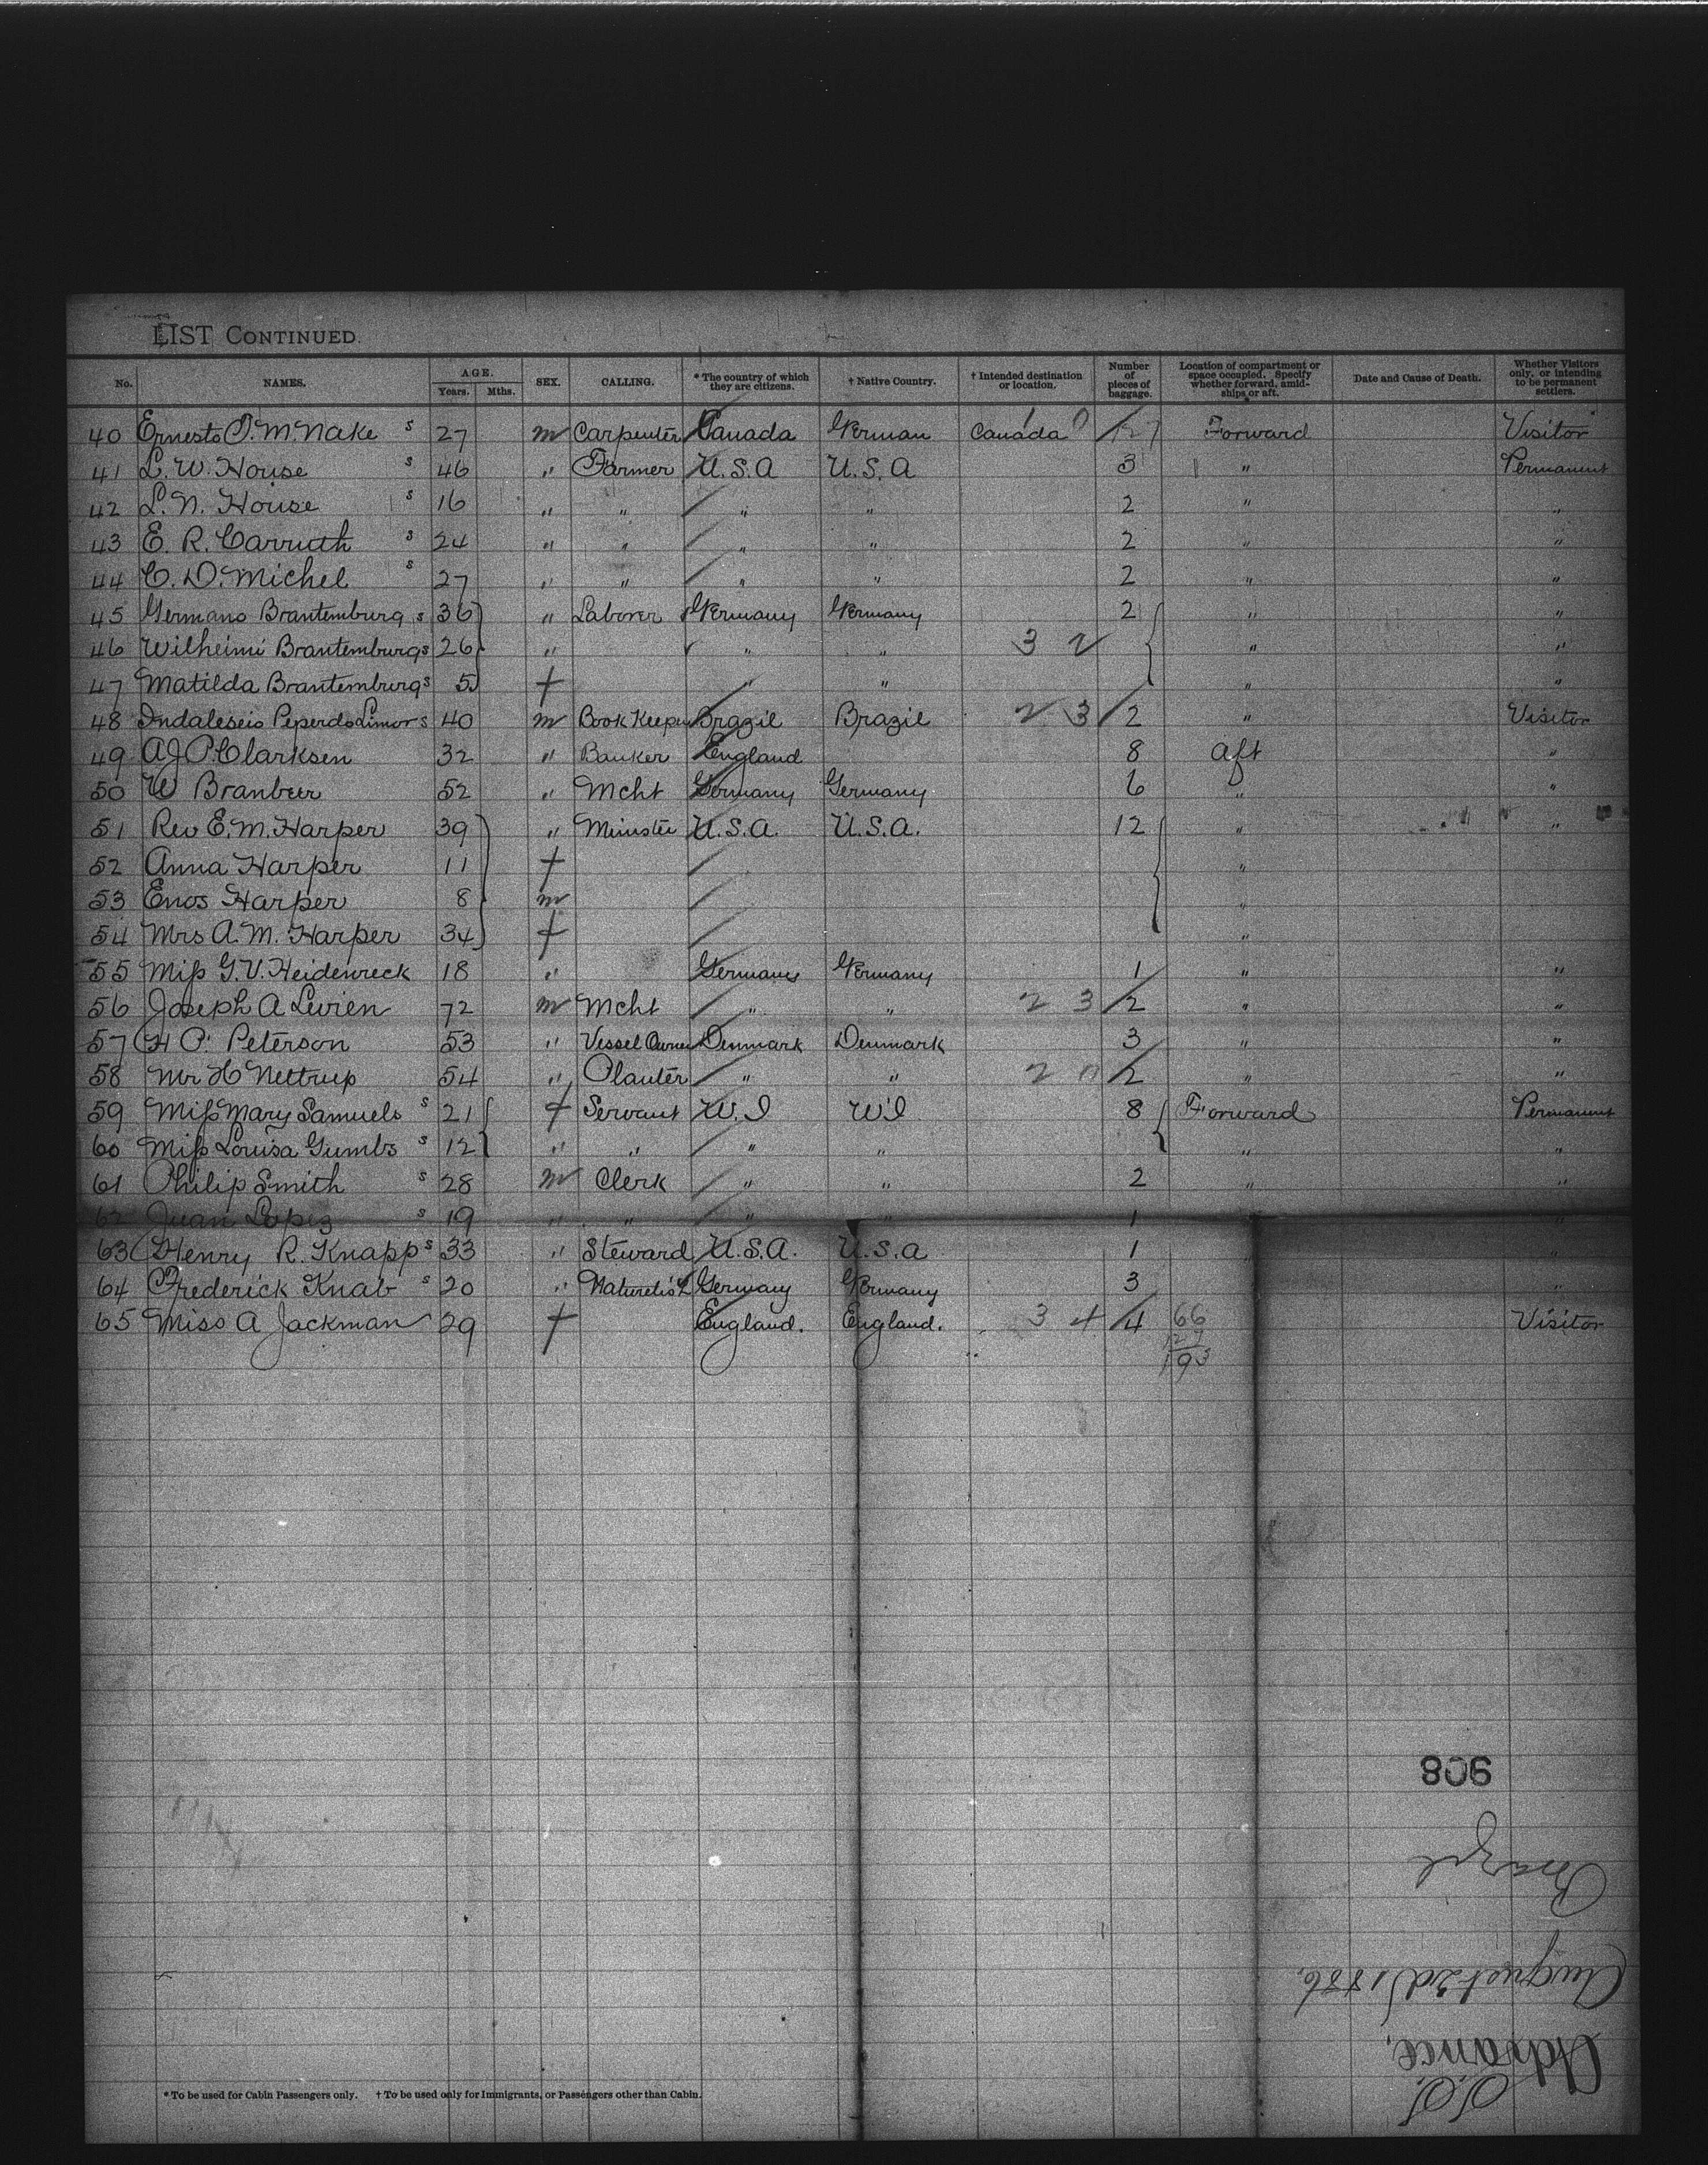 LIST CONTINUED.
No. NAMES. AGE. Years. Mths. SEX. CALLING. * The country of which they are citizens. † Native Country. † Intended destination or location. Number of pieces of baggage. Location of compartment or space occupied. Specify whether forward, amidships or aft. Date and Cause of Death. Whether Visitors only, or intending to be permanent settlers.
40 Ernesto T. McNake s 27 m Carpenter Canada German Canada Forward Visitor
41 L. W. House s 46 " Farmer U.S.A U.S.A 3 " Permanent
42 L. N. House s 16 " " " " 2 " "
43 E. R. Carruth s 24 " " " " 2 " "
44 C. D. Michel s 27 " " " " 2 " "
45 Germano Brantemburg s 36 " Laborer Germany Germany 2 " "
46 Wilheimi Brantemburg s 26 " " " 3 2 " "
47 Matilda Brantemburg s 5 f " " " "
48 Indaleseio Peperdo Limor s 40 m Book Keeper Brazil Brazil 2 3 2 " Visitor
49 A J P. Clarksen 32 " Banker England 8 aft "
50 W Branbeer 52 " Mcht Germany Germany 6 " "
51 Rev E. M. Harper 39 " Minster U.S.A. U.S.A. 12 " "
52 Anna Harper 11 f "
53 Enos Harper 8 m "
54 Mrs A. M. Harper 34 f "
55 Miss G. V. Heidenreck 18 " Germany Germany 1 " "
56 Joseph A Levien 72 m Mcht " " 2 3 2 " "
57 H P. Peterson 53 " Vessel Owner Denmark Denmark 3 " "
58 Mr H Nettrup 54 " Planter " " 2 2 " "
59 Miss Mary Samuels s 21 f Servant W.I W I 8 Forward Permanent
60 Miss Louisa Gumbs s 12 " " " " " "
61 Philip Smith s 28 m Clerk " " 2 " "
62 Juan Lopez s 19 " " " " 1 "
63 Henry R. Knapp s 33 " Steward U.S.A. U.S.a 1 " "
64 Frederick Knab s 20 " Naturelist Germany Germany 3 "
65 Miss A Jackman 29 f England. England. 3 4 4 66 Visitor
127
193
908
Brazil
August 2d 1886.
Advance.
S.S.
* To be used for Cabin Passengers only. † To be used only for Immigrants, or Passengers other than Cabin.